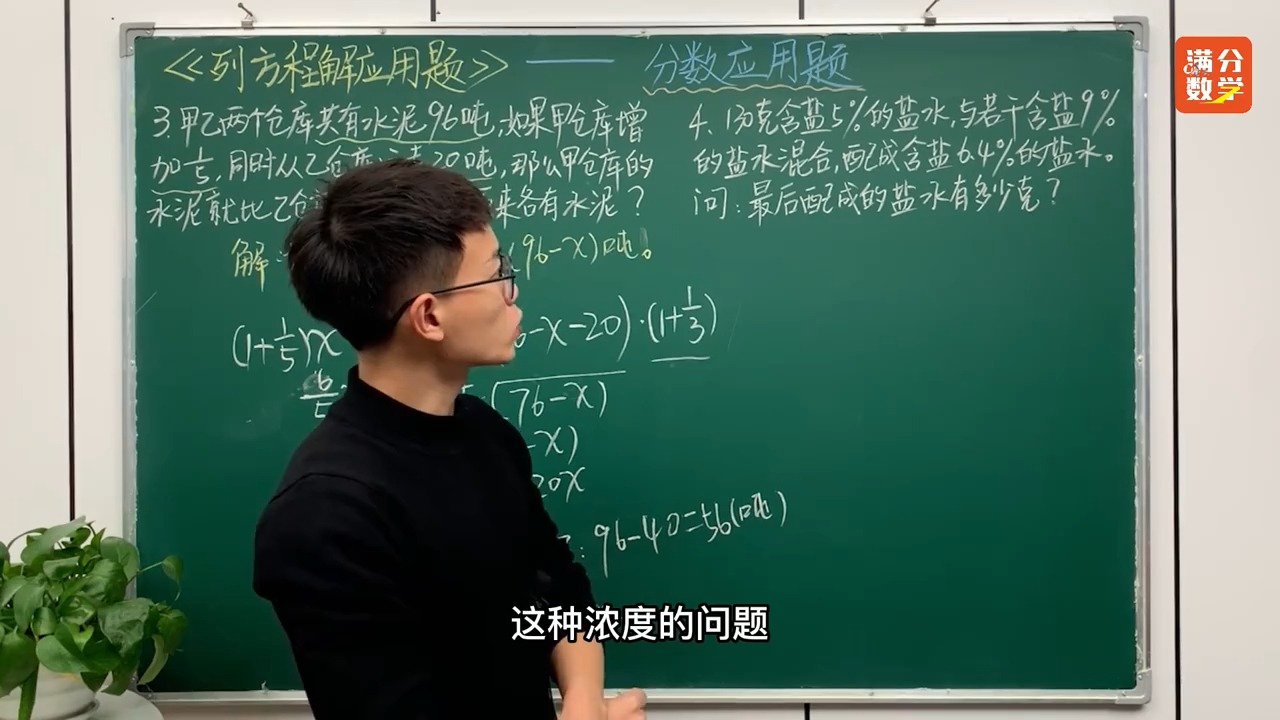 <<列方程解应用题>> —— 分数应用题
满分
数学
3.甲乙两个仓库共有水泥96吨,如果甲仓库增
加1/5,同时从乙仓库 20吨,那么甲仓库的
水泥就比乙仓 来各有水泥?
解: (96-x)吨。
(1+1/5)x -x-20)·(1+1/3)
6/5 (76-x)
-x)
20x
: 96-40=56(吨)
4、130克含盐5%的盐水,与若干含盐9%
的盐水混合,配成含盐6.4%的盐水。
问:最后配成的盐水有多少克?
这种浓度的问题